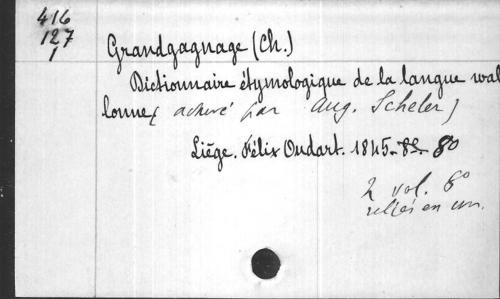 416
127
1
Grandgagnage (Ch.)
Dictionnaire étymologique de la langue wal
lonne (achevé par Aug. Scheler)
Liège. Félix Oudart. 1845- 80
2 vol. 8°
reliés en un.